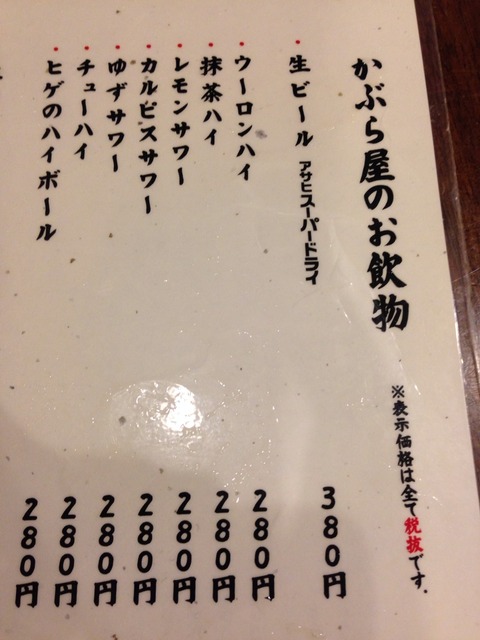 かぶら屋のお飲物
※表示価格は全て税抜です.
・生ビール アサヒスーパードライ 380円
・ウーロンハイ 280円
・抹茶ハイ 280円
・レモンサワー 280円
・カルピスサワー 280円
・ゆずサワー 280円
・チューハイ 280円
・ヒゲのハイボール 280円